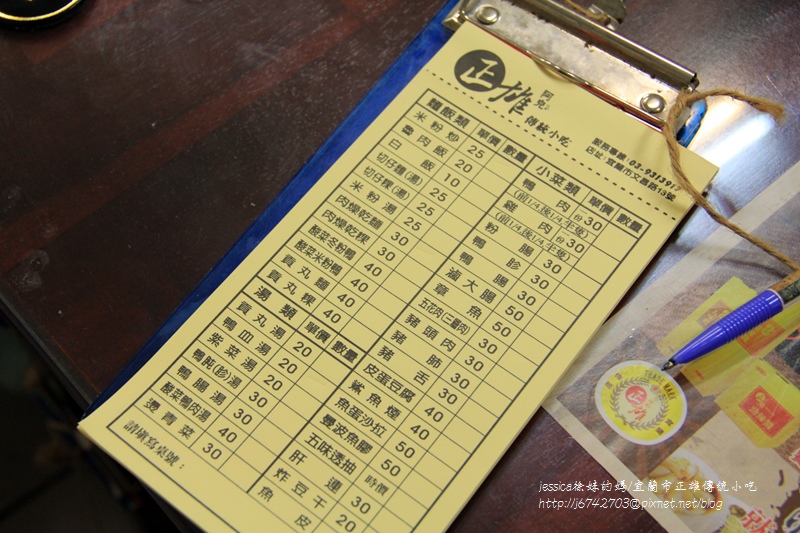 正雄
阿兌
傳統小吃
店址:宜蘭市文昌路13號
麵飯類 單價 數量
米粉炒 25
魯肉飯 20
白飯 10
切仔麵(湯) 25
切仔粿(湯) 25
米粉湯 25
肉燥乾麵 30
肉燥乾粿 30
酸菜冬粉鴨 40
酸菜米粉鴨 40
貢丸麵 40
貢丸粿 40
湯類 單價 數量
貢丸湯 20
鴨血湯 20
紫菜湯 20
鴨肫(胗)湯 30
鴨腸湯 30
酸菜鴨肉湯 40
燙青菜 30
請填寫桌號:
小菜類 單價 數量
鴨肉 份30
(前1/4.後1/4.半隻)
雞肉 份30
(前1/4.後1/4.半隻)
粉腸 30
鴨胗 30
鴨腸 30
滷大腸 50
章魚 50
五花肉(三層肉) 30
豬頭肉 30
豬肺 30
豬舌 30
皮蛋豆腐 30
鯊魚煙 40
魚蛋沙拉 40
曼波魚膠 50
五味透抽 時價
肝連 30
炸豆干 20
魚皮
正雄
jessica徐妹的媽/宜蘭市正雄傳統小吃
http://j6742703@pixnet.net/blog